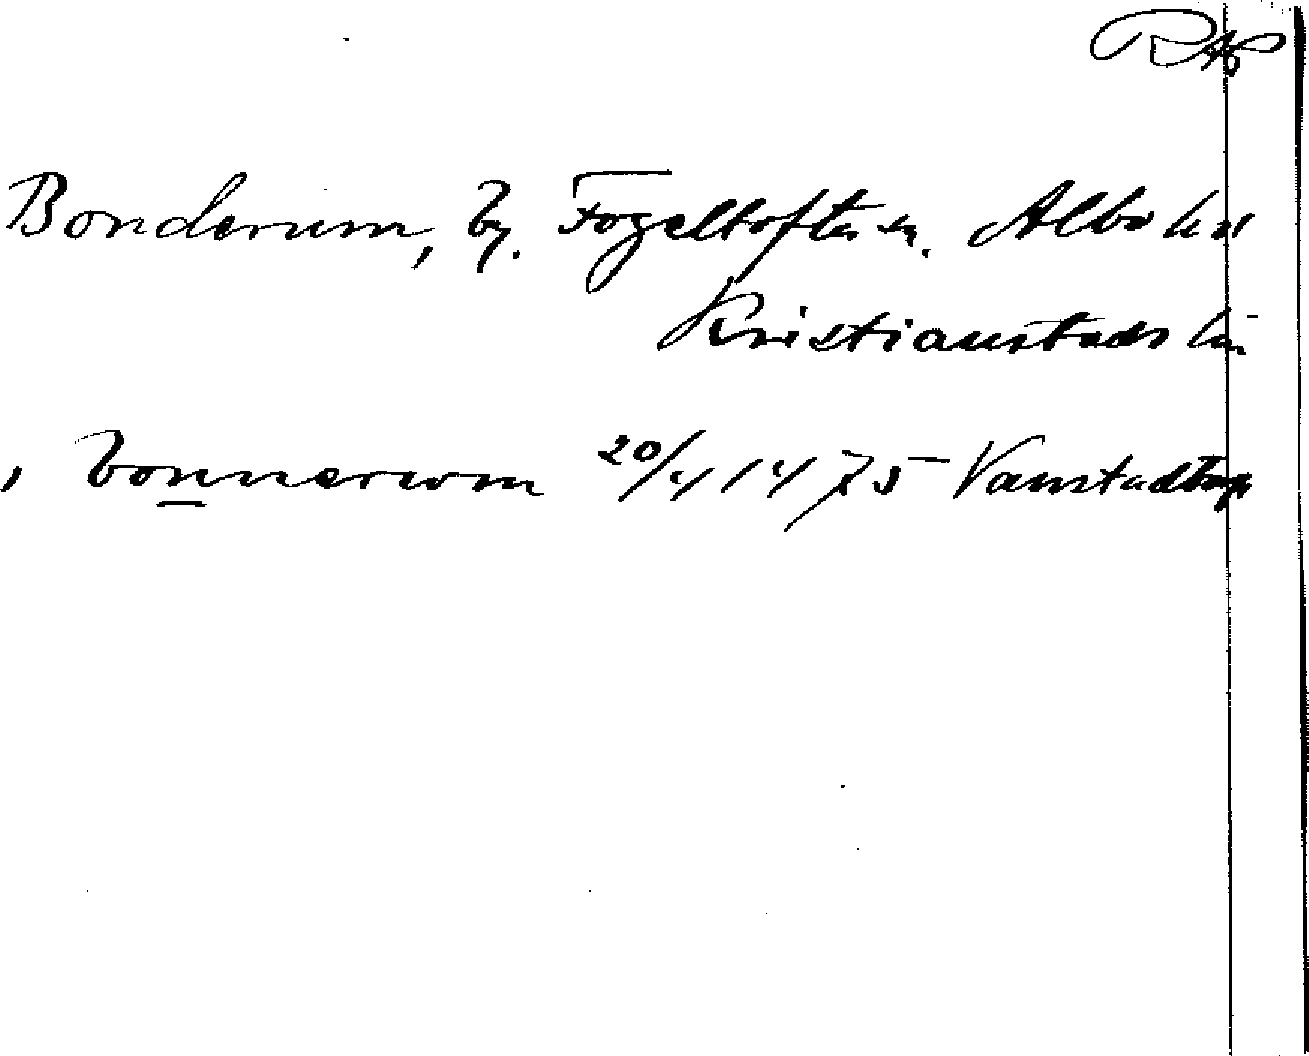 RAp
Bonderum, by. Fogeltofta sn. Albo hd
Kristianstads län
, bonnerwm 20/4 1475 Vanstadtorp